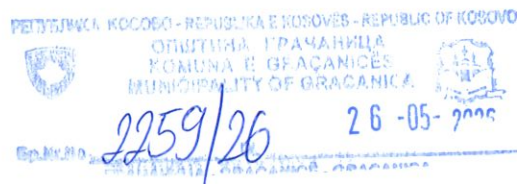 РЕПУБЛИКА КОСОВО - REPUBLIKA E KOSOVËS - REPUBLIC OF KOSOVO
ОПШТИНА ГРАЧАНИЦА
KOMUNA E GRAÇANICËS
MUNICIPALITY OF GRAÇANICA
2259/26
26 -05-
GRAÇANICË - GRAČANICA